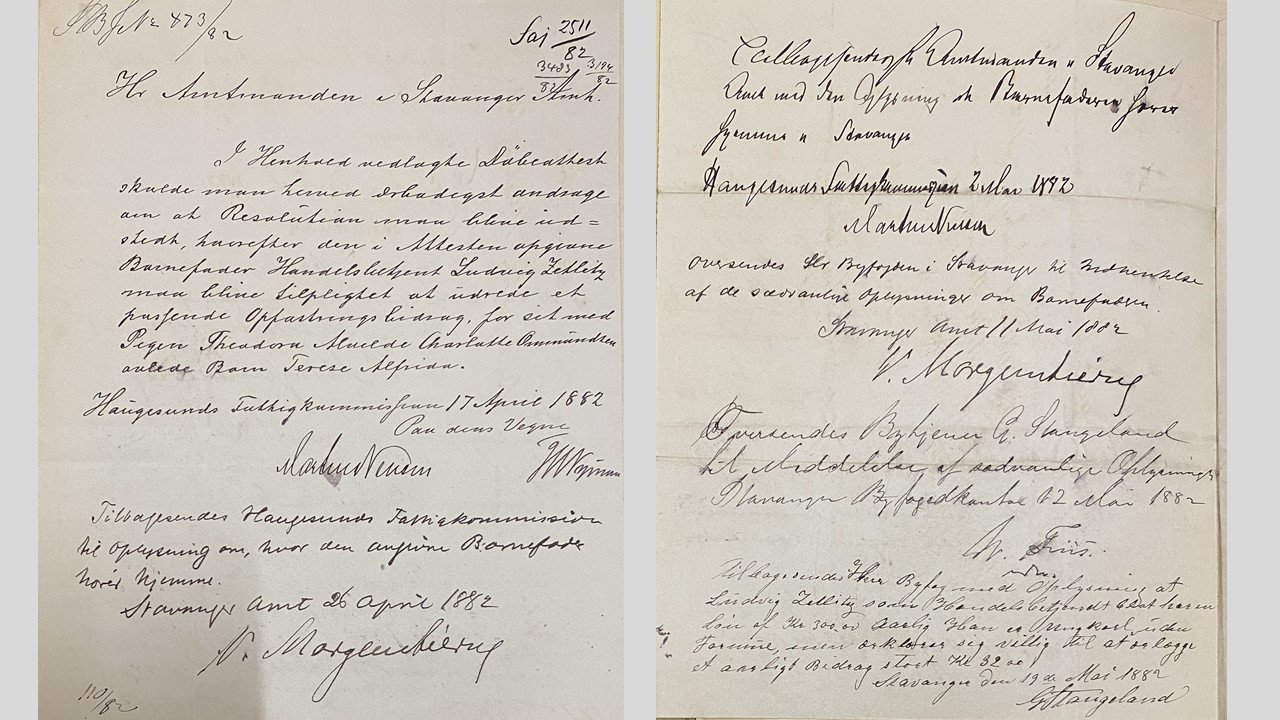 No 473/82
Saj 2511/82
3483/82 3194/82
Hr Amtmanden i Stavanger Amt.
I Henhold vedlagte Döbeattest
skulde man herved ærbødigst andrage
om at Resolution maa blive ud=
stedt, hvorefter den i Attesten opgivne
Barnefader Handelsbetjent Ludvig Zetlitz
maa blive tilpligtet at udrede et
passende Opfostringsbidrag, for sit med
Pigen Theodora Amundsen
avlede Barn Terese Alfrida.
Haugesunds Fattigkommission 17 April 1882
Paa dens Vegne
Tilbagesendes Haugesunds Fattigkommission
til Oplysning om, hvor den angivne Barnefader
hører hjemme.
Stavanger Amt 26 April 1882
V. Morgenstierne
110/82
Tilbagesendes Hr Amtmanden i Stavanger
Amt med den Oplysning at Barnefaderen hører
hjemme i Stavanger
Haugesunds Fattigkommission 2 Mai 1882
oversendes Hr Byfogden i Stavanger til Indhentelse
af de sædvanlige Oplysninger om Barnefaderen.
Stavanger Amt 11 Mai 1882
V. Morgenstierne
Oversendes Bytjener G. Stangeland
til Meddelelse af sædvanlige Oplysninger
Stavanger Byfogedkontor 12 Mai 1882
Fiis.
Tilbagesendes Hr Byfog med Oplysning at
Ludvig Zetlitz som Handelsbetjendt blot har en
Løn af Kr 300,00 Aarlig Han er Ungkarl uden
Formue, men erklærer sig villig til at erlægge
et aarligt Bidrag stort Kr 32 00
Stavanger den 19de Mai 1882
G Stangeland